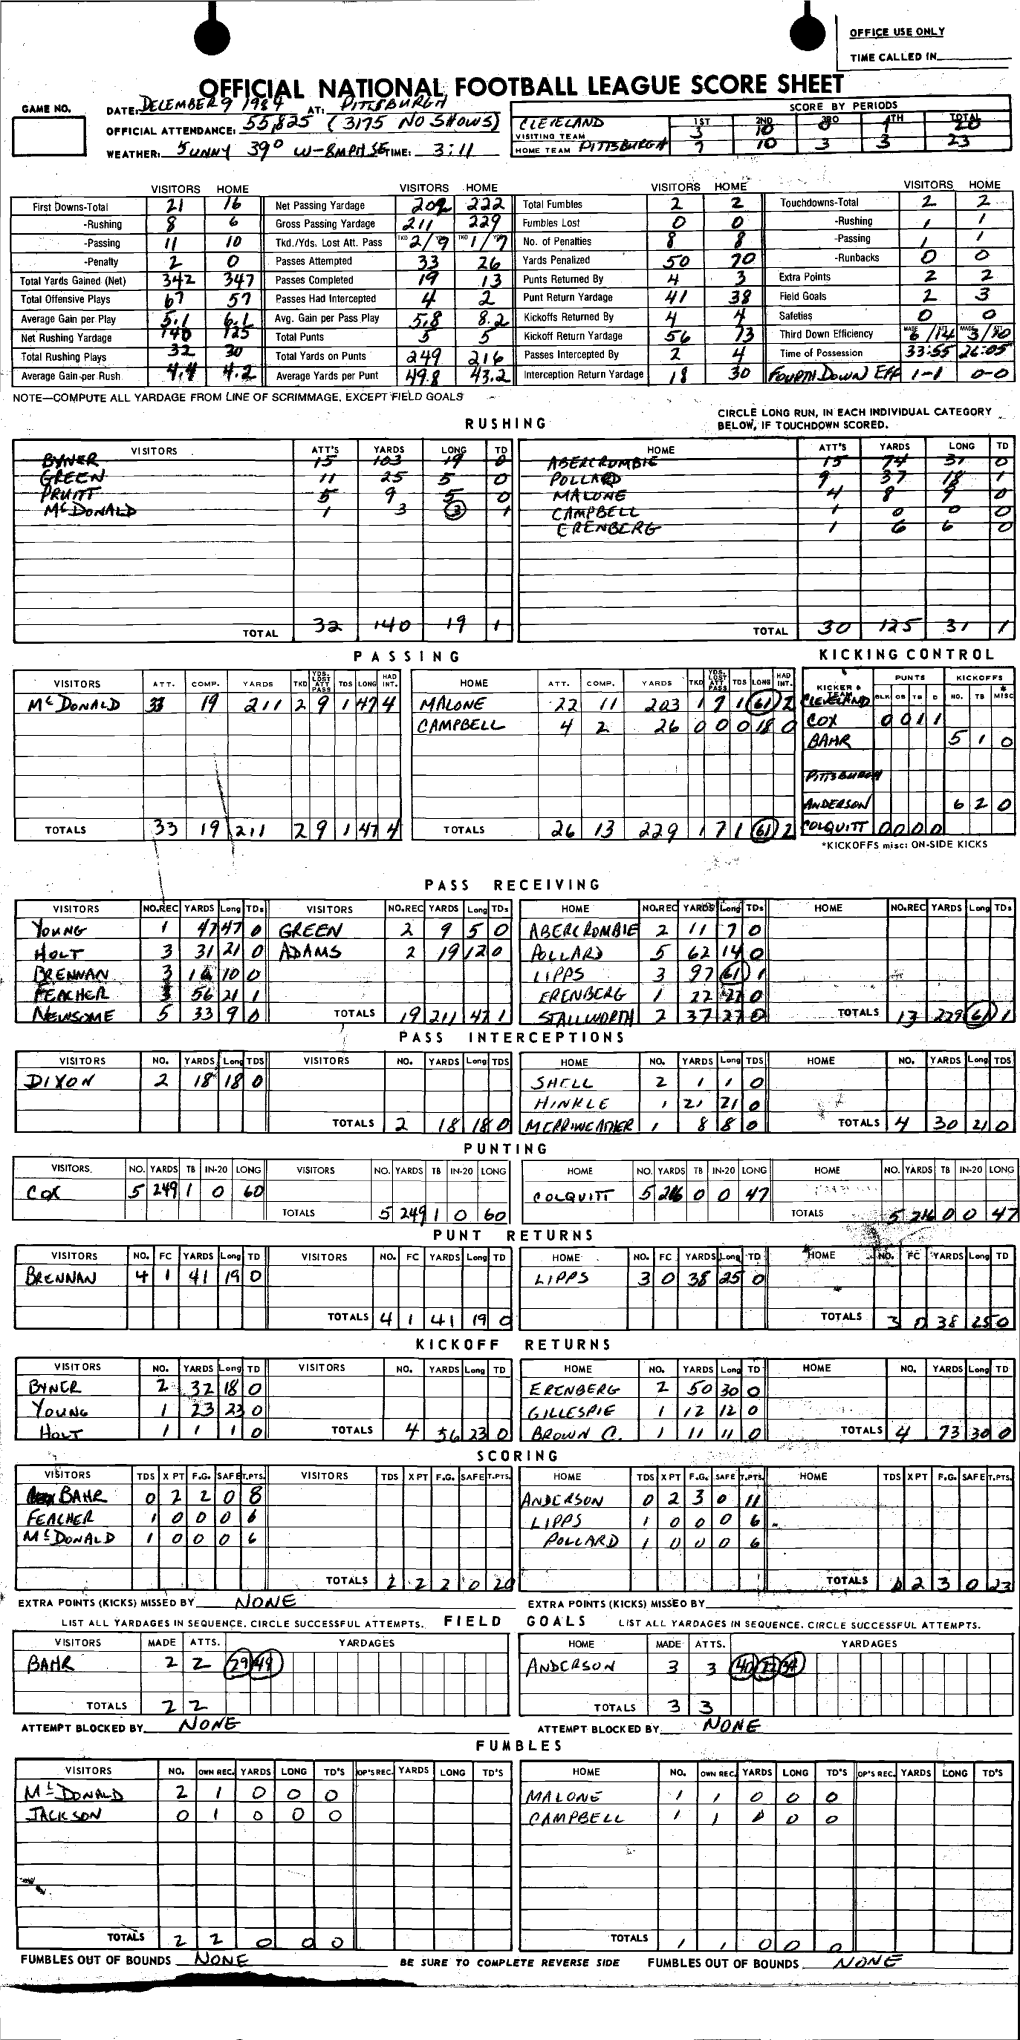 OFFICE USE ONLY
TIME CALLED IN
OFFICIAL NATIONAL FOOTBALL LEAGUE SCORE SHEET
GAME NO. DATE: DECEMBER 9 1984 AT: PITTSBURGH
OFFICIAL ATTENDANCE: 55,825 (3175 NO SHOWS)
WEATHER: SUNNY 39° W-8MPH SE TIME: 3:11
SCORE BY PERIODS
CLEVELAND 1ST 2ND 3RD 4TH TOTAL
VISITING TEAM 3 10 0 7 20
HOME TEAM PITTSBURGH 7 10 3 3 23
VISITORS HOME VISITORS HOME VISITORS HOME VISITORS HOME
First Downs-Total 21 16 Net Passing Yardage 202 222 Total Fumbles 2 2 Touchdowns-Total 2 2
-Rushing 8 6 Gross Passing Yardage 211 229 Fumbles Lost 0 0 -Rushing 1 1
-Passing 11 10 Tkd./Yds. Lost Att. Pass 2/9 1/7 No. of Penalties 8 8 -Passing 1 1
-Penalty 2 0 Passes Attempted 33 26 Yards Penalized 50 70 -Runbacks 0 0
Total Yards Gained (Net) 342 347 Passes Completed 19 13 Punts Returned By 4 3 Extra Points 2 2
Total Offensive Plays 67 57 Passes Had Intercepted 4 2 Punt Return Yardage 41 38 Field Goals 2 3
Average Gain per Play 5.1 6.1 Avg. Gain per Pass Play 5.8 8.2 Kickoffs Returned By 4 4 Safeties 0 0
Net Rushing Yardage 140 125 Total Punts 5 5 Kickoff Return Yardage 56 73 Third Down Efficiency 6/14 3/10
Total Rushing Plays 32 30 Total Yards on Punts 249 216 Passes Intercepted By 2 4 Time of Possession 33:55 26:05
Average Gain per Rush 4.4 4.2 Average Yards per Punt 49.8 43.2 Interception Return Yardage 18 30 FOURTH DOWN EFF 1-1 0-0
NOTE—COMPUTE ALL YARDAGE FROM LINE OF SCRIMMAGE, EXCEPT FIELD GOALS
CIRCLE LONG RUN, IN EACH INDIVIDUAL CATEGORY BELOW, IF TOUCHDOWN SCORED.
RUSHING
VISITORS ATT'S YARDS LONG TD HOME ATT'S YARDS LONG TD
BYNER 15 103 19 0 ABERCROMBIE 15 74 31 0
GREEN 11 25 5 0 POLLARD 9 37 18 1
PRUITT 5 9 5 0 MALONE 4 8 9 0
McDONALD 1 3 3 1 CAMPBELL 1 0 0 0
ERENBERG 1 6 6 0
TOTAL 32 140 19 1 TOTAL 30 125 31 1
PASSING KICKING CONTROL
VISITORS ATT. COMP. YARDS TKD YDS. LOST ATT PASS TDS LONG HAD INT. HOME ATT. COMP. YARDS TKD YDS. LOST ATT PASS TDS LONG HAD INT. KICKER & TEAM PUNTS BLK OB TB D KICKOFFS NO. TB MISC *
McDONALD 33 19 211 2 9 1 47 4 MALONE 22 11 203 1 7 1 61 2 CLEVELAND
CAMPBELL 4 2 26 0 0 0 18 0 COX 0 0 1 1
BAHR 5 1 0
PITTSBURGH
ANDERSON 6 2 0
TOTALS 33 19 211 2 9 1 47 4 TOTALS 26 13 229 1 7 1 61 2 COLQUITT 0 0 0 0
*KICKOFFS misc: ON-SIDE KICKS
PASS RECEIVING
VISITORS NO.REC YARDS Long TDs VISITORS NO.REC YARDS Long TDs HOME NO.REC YARDS Long TDs HOME NO.REC YARDS Long TDs
YOUNG 1 47 47 0 GREEN 2 9 5 0 ABERCROMBIE 2 11 7 0
HOLT 3 31 21 0 ADAMS 2 19 12 0 POLLARD 5 62 14 0
BRENNAN 3 16 10 0 LIPPS 3 97 61 1
FEACHER 3 56 21 1 ERENBERG 1 22 22 0
NEWSOME 5 33 9 0 TOTALS 19 211 47 1 STALLWORTH 2 37 27 0 TOTALS 13 229 61 1
PASS INTERCEPTIONS
VISITORS NO. YARDS Long TDS VISITORS NO. YARDS Long TDS HOME NO. YARDS Long TDS HOME NO. YARDS Long TDS
DIXON 2 18 18 0 SHELL 2 1 1 0
HINKLE 1 21 21 0
TOTALS 2 18 18 0 MERRIWEATHER 1 8 8 0 TOTALS 4 30 21 0
PUNTING
VISITORS NO. YARDS TB IN-20 LONG VISITORS NO. YARDS TB IN-20 LONG HOME NO. YARDS TB IN-20 LONG HOME NO. YARDS TB IN-20 LONG
COX 5 249 1 0 60 COLQUITT 5 216 0 0 47
TOTALS 5 249 1 0 60 TOTALS 5 216 0 0 47
PUNT RETURNS
VISITORS NO. FC YARDS Long TD VISITORS NO. FC YARDS Long TD HOME NO. FC YARDS Long TD HOME NO. FC YARDS Long TD
BRENNAN 4 1 41 19 0 LIPPS 3 0 38 25 0
TOTALS 4 1 41 19 0 TOTALS 3 0 38 25 0
KICKOFF RETURNS
VISITORS NO. YARDS Long TD VISITORS NO. YARDS Long TD HOME NO. YARDS Long TD HOME NO. YARDS Long TD
BYNER 2 32 18 0 ERENBERG 2 50 30 0
YOUNG 1 23 23 0 GILLESPIE 1 12 12 0
HOLT 1 1 1 0 TOTALS 4 56 23 0 BROWN C. 1 11 11 0 TOTALS 4 73 30 0
SCORING
VISITORS TDS X PT F.G. SAFE T.PTS. VISITORS TDS X PT F.G. SAFE T.PTS. HOME TDS X PT F.G. SAFE T.PTS. HOME TDS X PT F.G. SAFE T.PTS.
BAHR 0 2 2 0 8 ANDERSON 0 2 3 0 11
FEACHER 1 0 0 0 6 LIPPS 1 0 0 0 6
McDONALD 1 0 0 0 6 POLLARD 1 0 0 0 6
TOTALS 2 2 2 0 20 TOTALS 2 3 0 23
EXTRA POINTS (KICKS) MISSED BY NONE EXTRA POINTS (KICKS) MISSED BY
LIST ALL YARDAGES IN SEQUENCE. CIRCLE SUCCESSFUL ATTEMPTS. FIELD GOALS LIST ALL YARDAGES IN SEQUENCE. CIRCLE SUCCESSFUL ATTEMPTS.
VISITORS MADE ATTS. YARDAGES HOME MADE ATTS. YARDAGES
BAHR 2 2 29 48 ANDERSON 3 3 40 34
TOTALS 2 2 TOTALS 3 3
ATTEMPT BLOCKED BY NONE ATTEMPT BLOCKED BY NONE
FUMBLES
VISITORS NO. OWN REC. YARDS LONG TD'S OP'S REC. YARDS LONG TD'S HOME NO. OWN REC. YARDS LONG TD'S OP'S REC. YARDS LONG TD'S
McDONALD 2 1 0 0 0 MALONE 1 1 0 0 0
JACKSON 0 1 0 0 0 CAMPBELL 1 1 0 0 0
TOTALS 2 2 0 0 0 TOTALS 1 1 0 0 0
FUMBLES OUT OF BOUNDS NONE BE SURE TO COMPLETE REVERSE SIDE FUMBLES OUT OF BOUNDS NONE